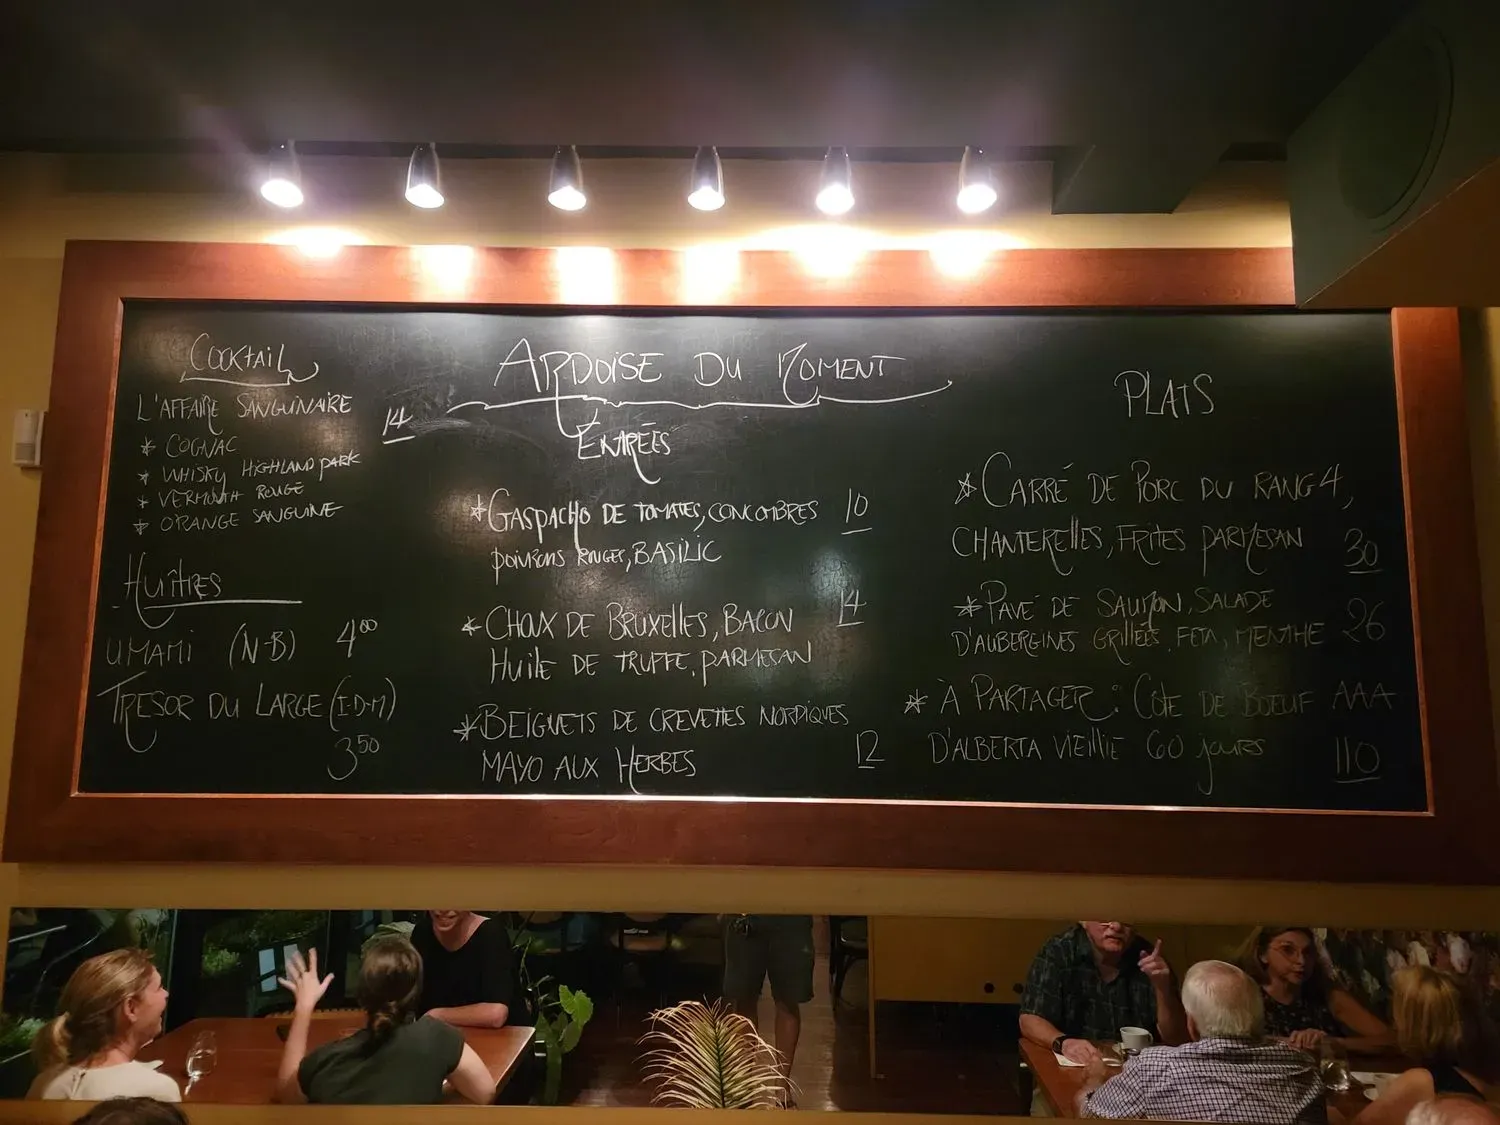 COCKTAIL
L'AFFAIRE SANGUINAIRE 14
* COGNAC
* WHISKY HIGHLAND PARK
* VERMOUTH ROUGE
* ORANGE SANGUINE
HUÎTRES
UMAMI (N-B) 4⁰⁰
TRESOR DU LARGE (I-D-M)
3⁵⁰
ARDOISE DU MOMENT
ENTRÉES
* GASPACHO DE TOMATES, CONCOMBRES 10
POIVRONS ROUGES, BASILIC
* CHOUX DE BRUXELLES, BACON 14
HUILE DE TRUFFE, PARMESAN
* BEIGNETS DE CREVETTES NORDIQUES
MAYO AUX HERBES 12
PLATS
* CARRÉ DE PORC DU RANG 4,
CHANTERELLES, FRITES PARMESAN 30
* PAVÉ DE SAUMON, SALADE
D'AUBERGINES GRILLÉES, FETA, MENTHE 26
* À PARTAGER : CÔTE DE BOEUF AAA
D'ALBERTA VIEILLIE 60 jours 110